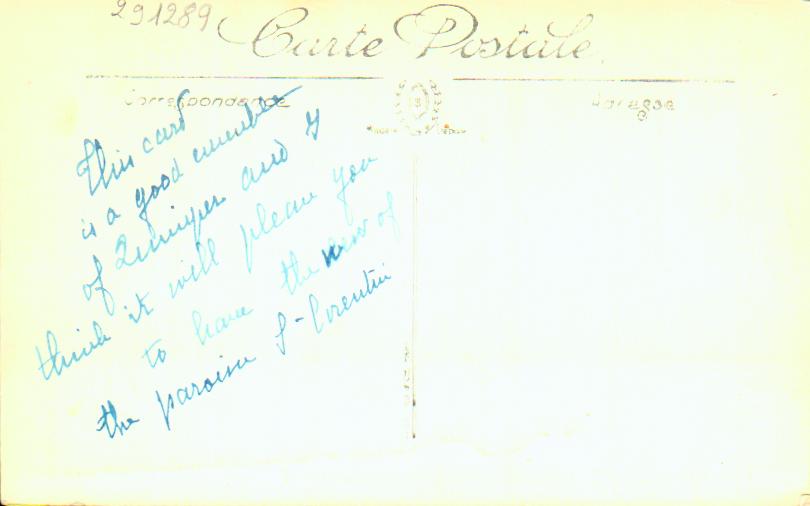 291289
Carte Postale
Correspondance
Adresse
This card
is a good remember
of Quimper and I
think it will please you
to have the view of
the paroisse St-Corentin